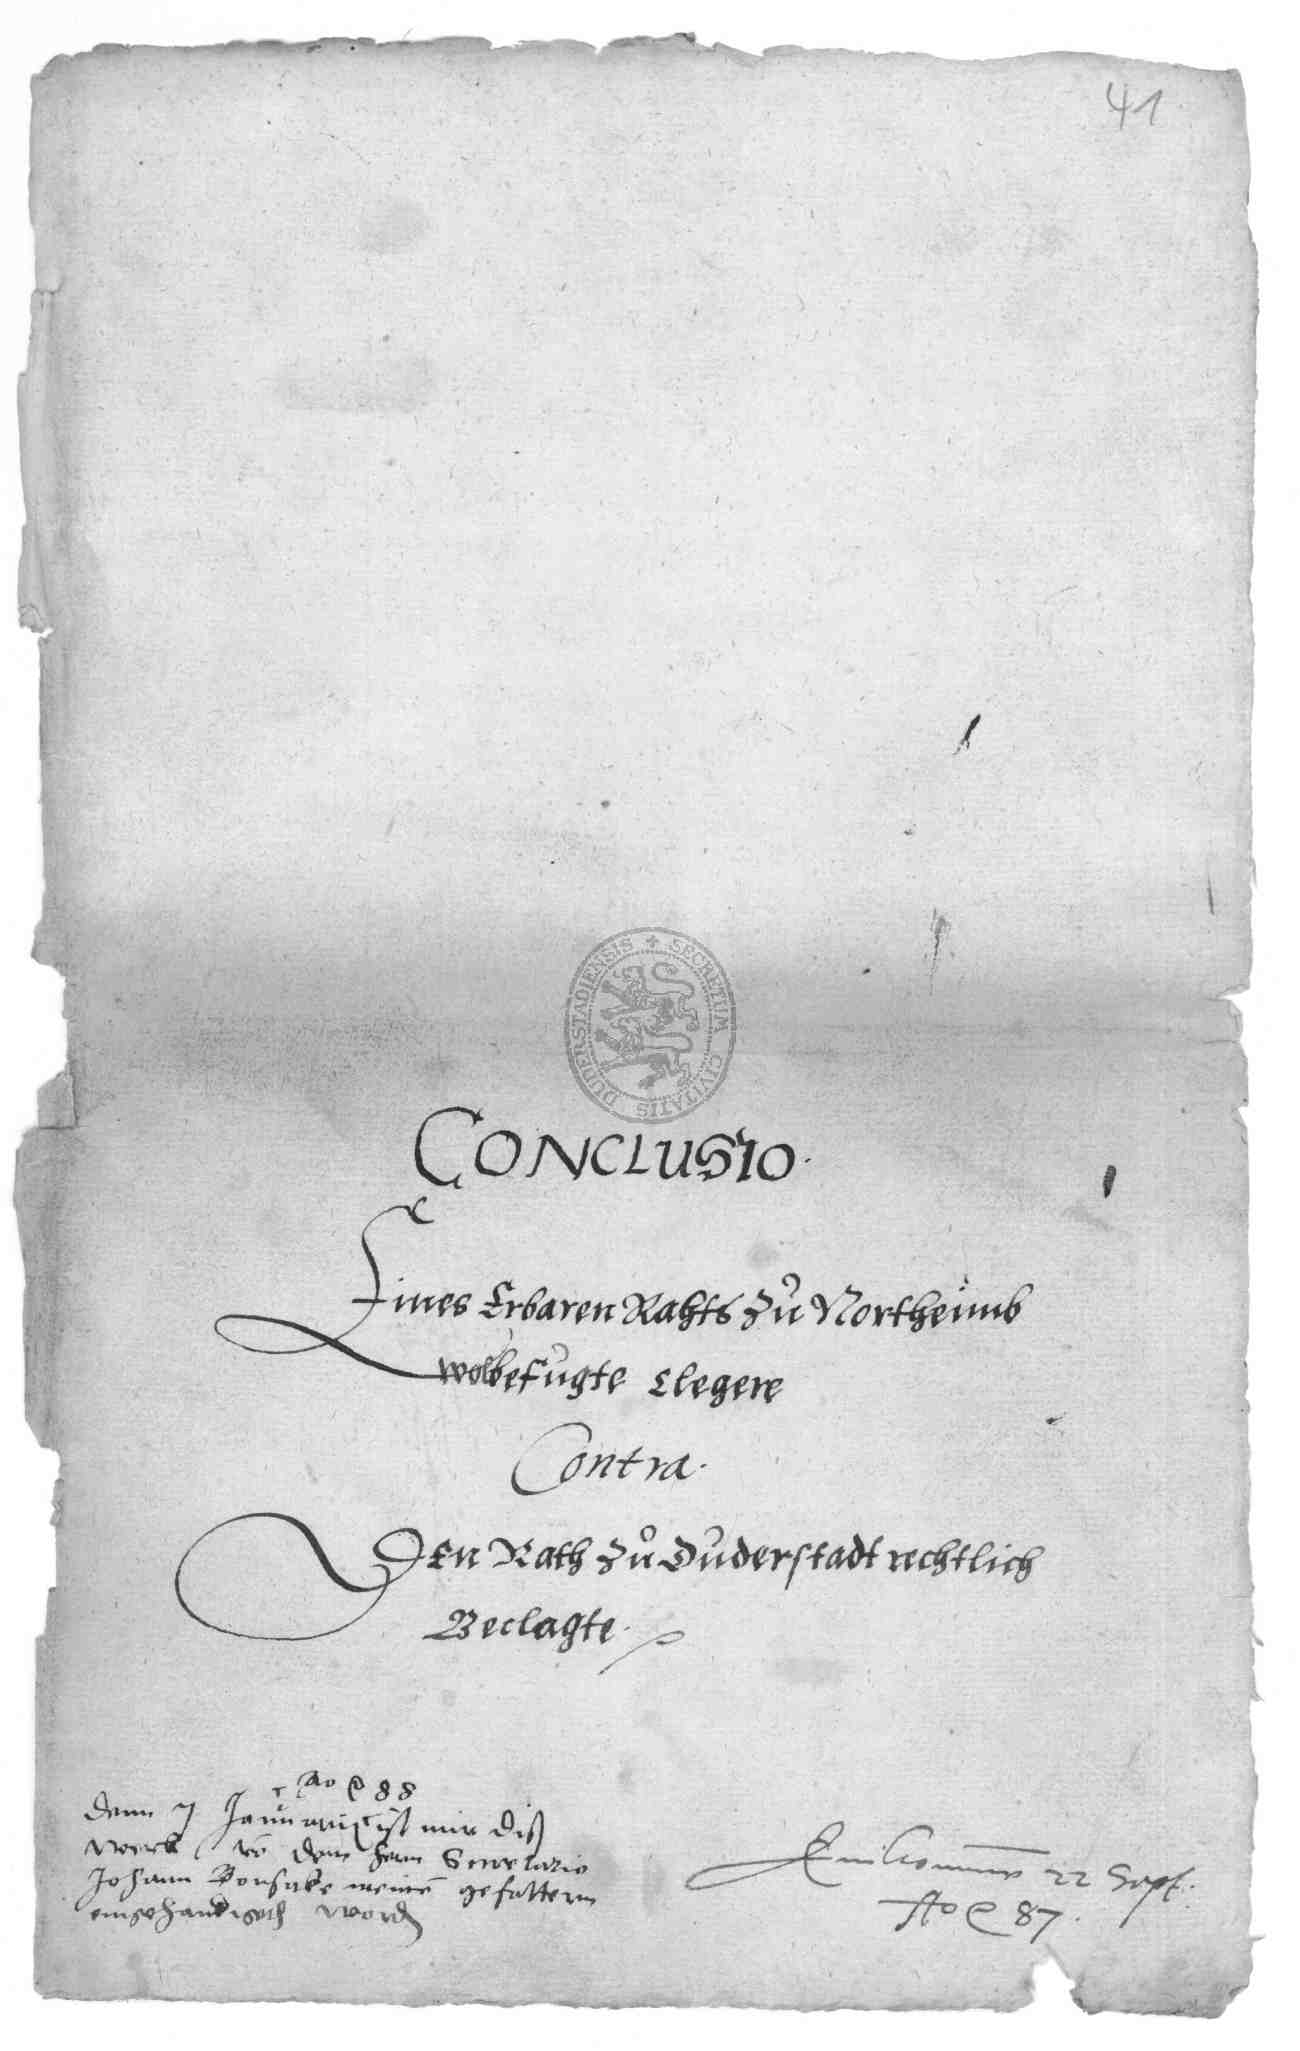 41
SECRETUM CIVITATIS DUDERSTADIENSIS
CONCLUSIO.
Eines Erbaren Rahts zu Northeimb
wolbefugte Clegere
Contra.
Den Rath zu Duderstadt rechtlich
Beclagte.
Ao 88
Denn 7 Januarij ist mir diß
werk vo dem hern Secretario
Johann meine gefattern
eingehandigeth word
Einkommen 22 Sept.
Ao 87.